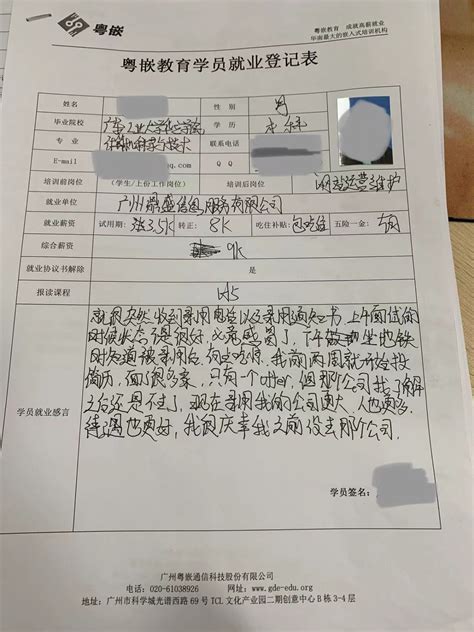 粤嵌
粤嵌教育 成就高薪就业
华南最大的嵌入式培训机构
粤嵌教育学员就业登记表
姓名 性别 男
毕业院校 学历 本科
专业 计算机科学与技术 联系电话
E-mail qq.com Q Q
培训前岗位 (学生/上份工作岗位) 培训后岗位 网站运营维护
就业单位 广州 盛信息服务有限公司
就业薪资 试用期: 3.5k 转正: 8K 吃住补贴: 包吃住 五险一金: 有
综合薪资 9k
就业协议书解除 是
报读课程 H5
学员就业感言
就很突然收到录用电话以及录用通知书,上午面试的
时候状态不是很好,感冒了,下午 坐地铁
时知道被录用后,有些吃惊,我前两周就开始投
简历,面了很多家,只有一个offer,但那公司我了解
之后还是不去了,现在录用我的公司更大,人也更多,
待遇也更好,我很庆幸我之前没去那个公司.
学员签名:
广州粤嵌通信科技股份有限公司
电话: 020-61038926 网址: www.gde-edu.org
地址: 广州市科学城光谱西路 69 号 TCL 文化产业园二期创意中心 B 栋 3-4 层